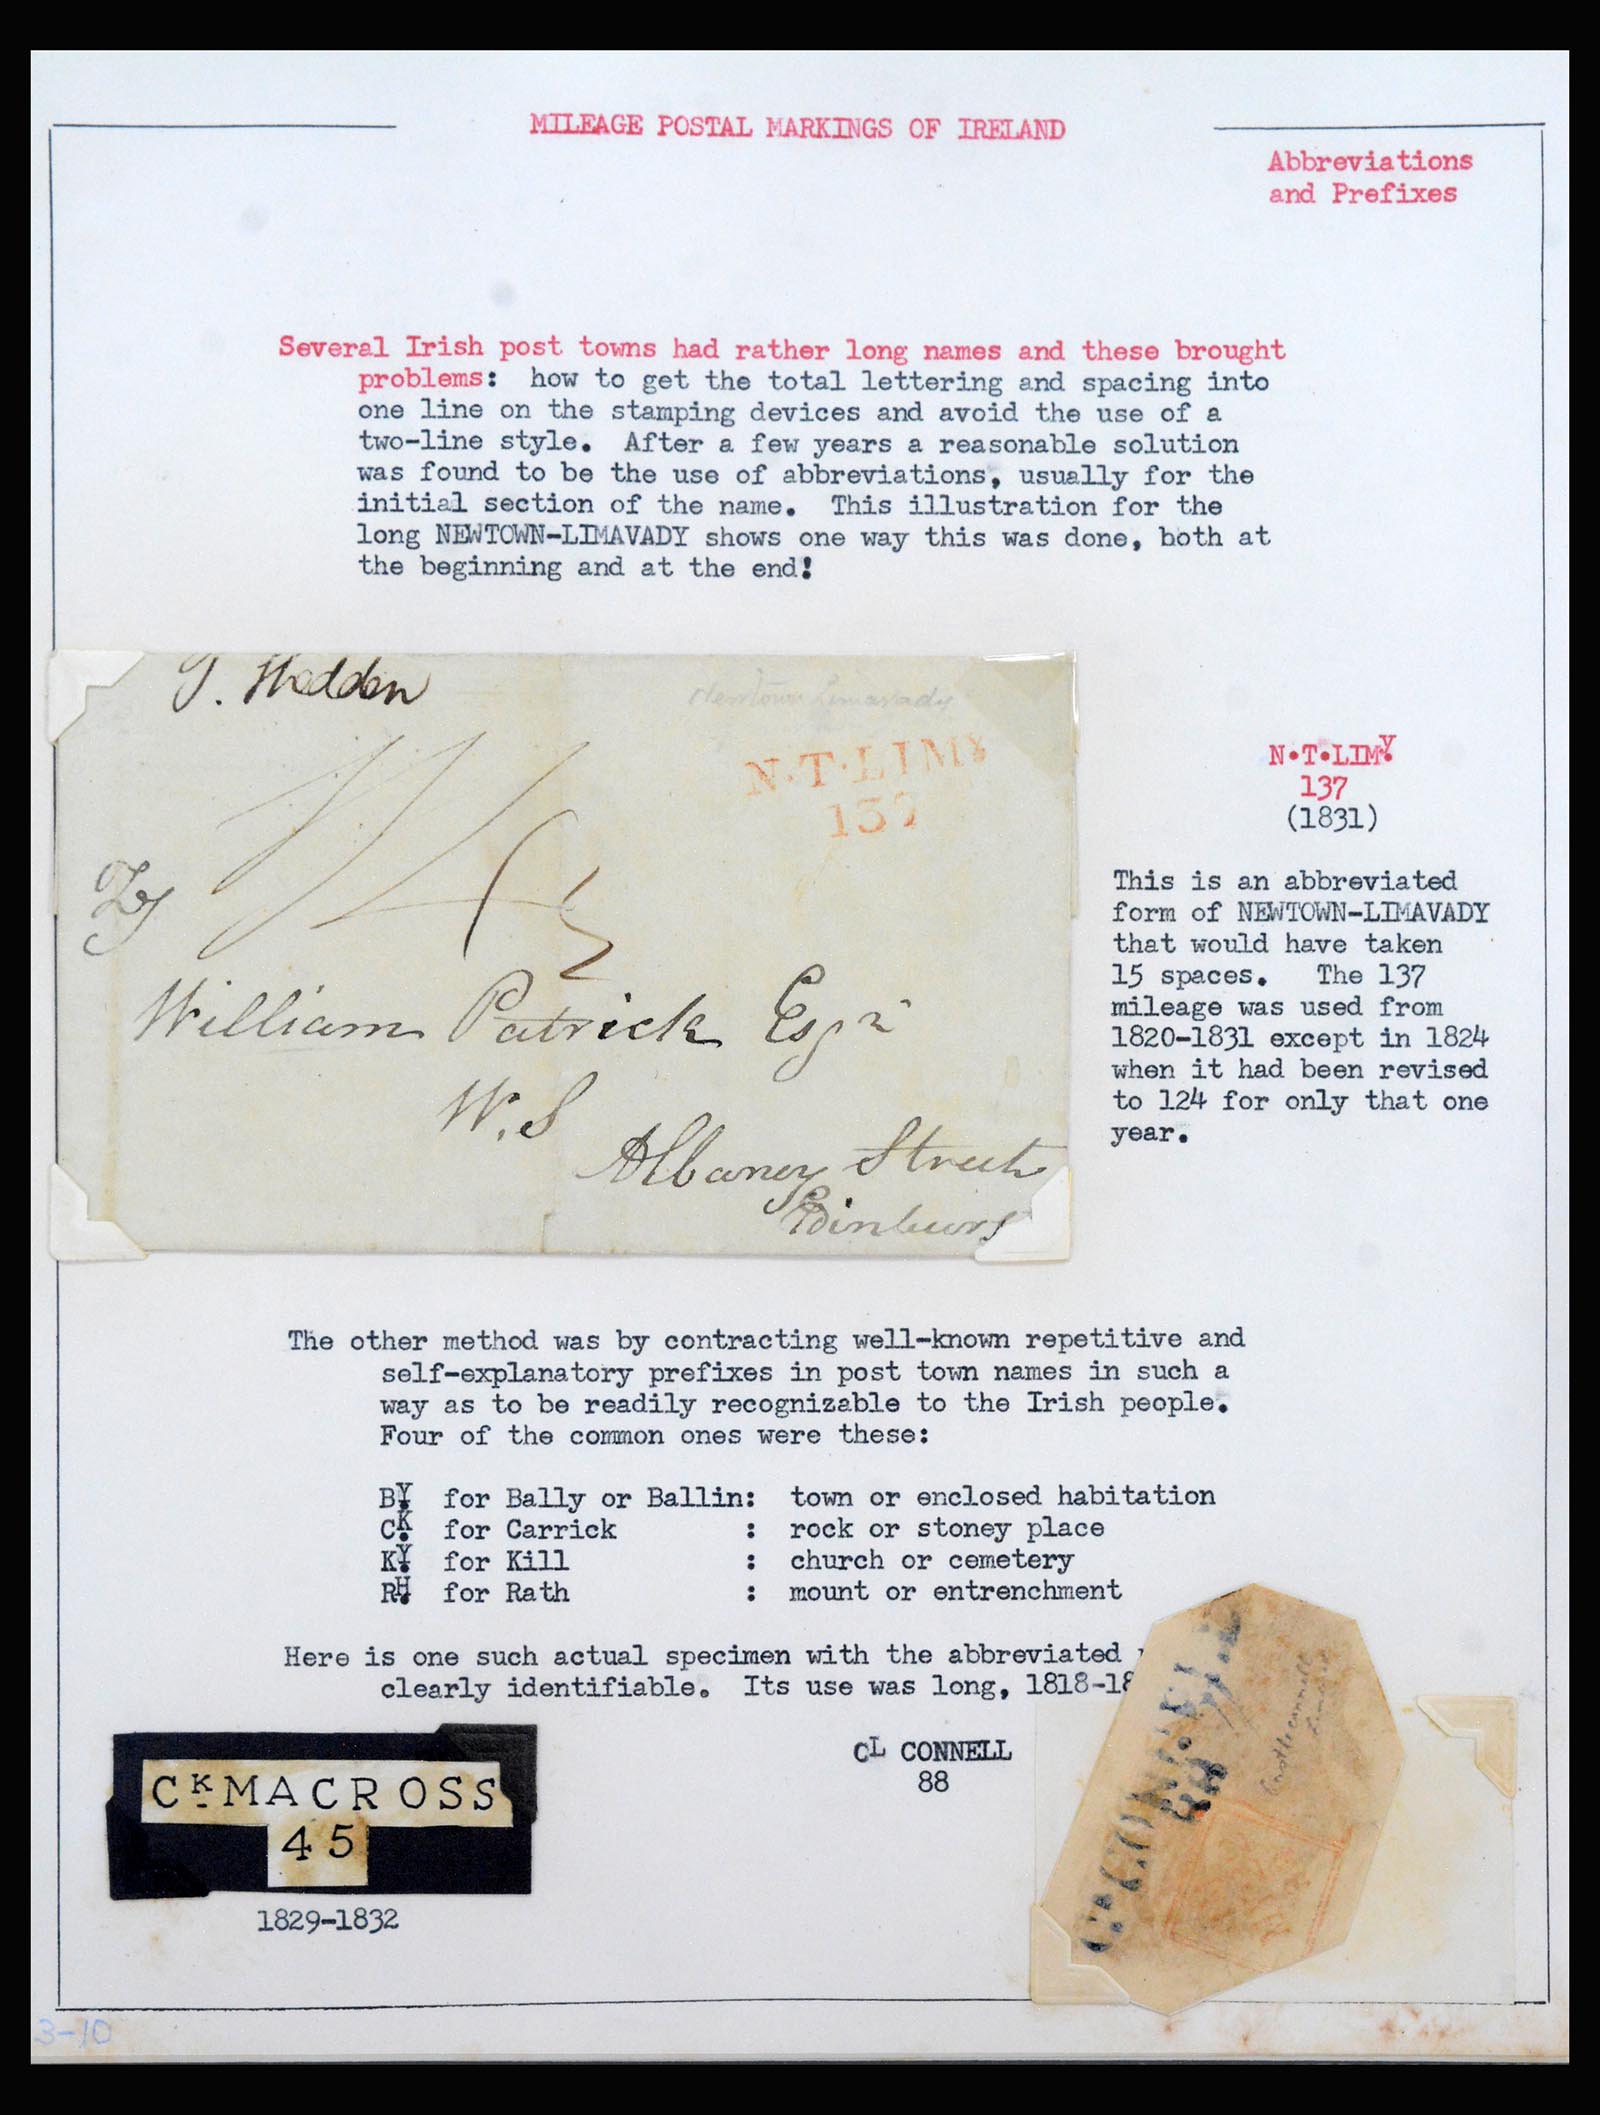 MILEAGE POSTAL MARKINGS OF IRELAND
Abbreviations
and Prefixes
Several Irish post towns had rather long names and these brought
problems: how to get the total lettering and spacing into
one line on the stamping devices and avoid the use of a
two-line style. After a few years a reasonable solution
was found to be the use of abbreviations, usually for the
initial section of the name. This illustration for the
long NEWTOWN-LIMAVADY shows one way this was done, both at
the beginning and at the end!
Newtown Limavady
N·T·LIMY
137
William Patrick Esqr
W.S
Albaney Street
N·T·LIMY.
137
(1831)
This is an abbreviated
form of NEWTOWN-LIMAVADY
that would have taken
15 spaces. The 137
mileage was used from
1820-1831 except in 1824
when it had been revised
to 124 for only that one
year.
The other method was by contracting well-known repetitive and
self-explanatory prefixes in post town names in such a
way as to be readily recognizable to the Irish people.
Four of the common ones were these:
BY. for Bally or Ballin: town or enclosed habitation
CK. for Carrick : rock or stoney place
KY. for Kill : church or cemetery
RH. for Rath : mount or entrenchment
Here is one such actual specimen with the abbreviated
clearly identifiable. Its use was long, 1818-18
CL CONNELL
88
Castleconnell
CK MACROSS
45
1829-1832
3-10